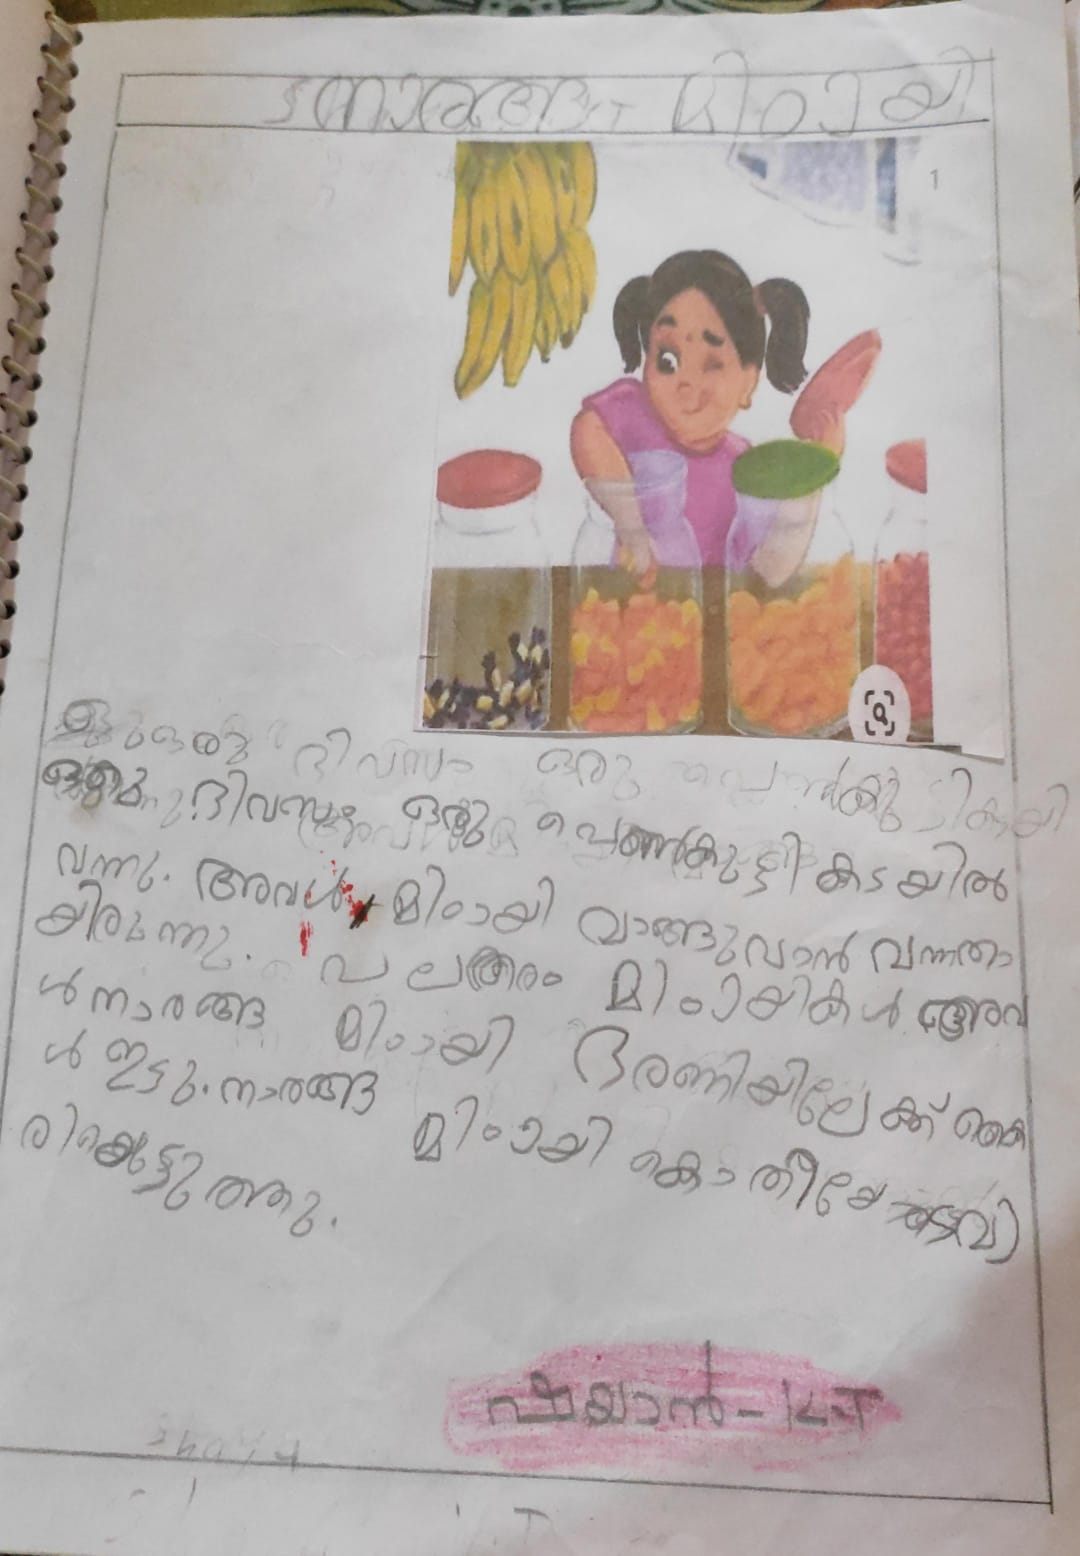 നാരങ്ങ മിഠായി
1
ദിവസം ഒരു പെൺകുട്ടി കടയി
ഒരു ദിവസം ഒരു പെൺകുട്ടി കടയിൽ
വന്നു. അവൾ മിഠായി വാങ്ങുവാൻ വന്നതാ
യിരുന്നു. പലതരം മിഠായികൾ അവ
ൾ നാരങ്ങ മിഠായി ഭരണിയിലേക്ക് കൈ
ൾ ഇട്ടു. നാരങ്ങ മിഠായി കൊതിയോ
രിയെട്ടുത്തു.
ഷയാൻ - K.T